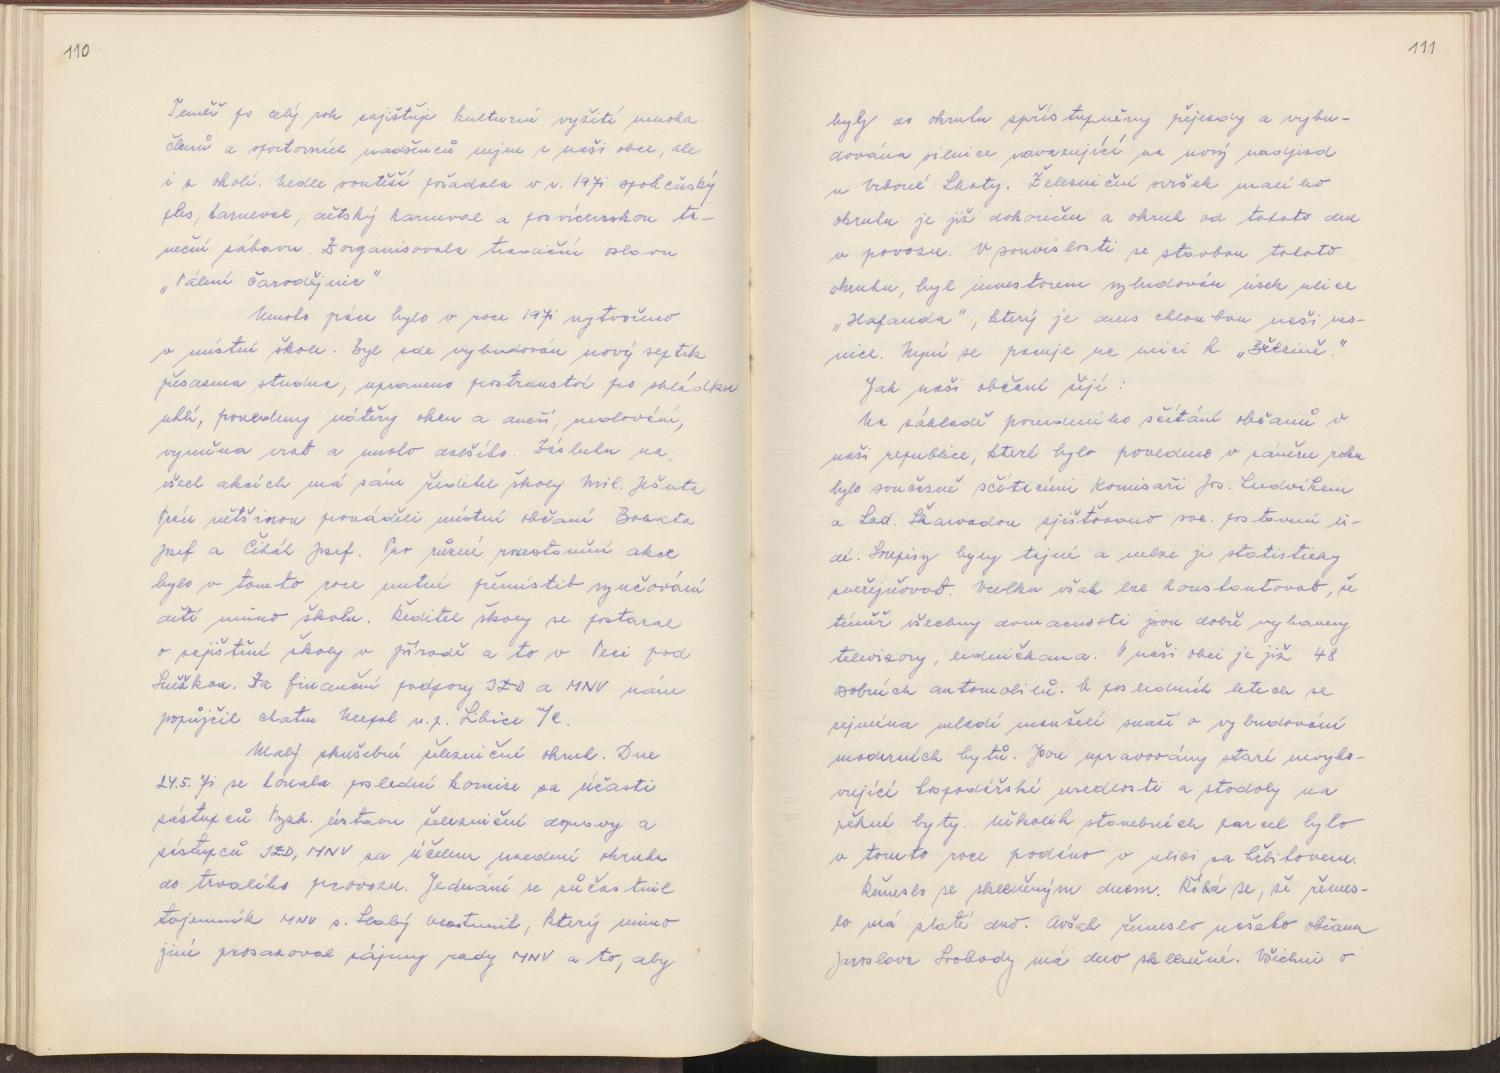 110
Téměř po celý rok zajišťuje kulturní vyžití mnoha
členů a sportovních nadšenců nejen z naší obce, ale
i z okolí. Vedle soutěží pořádala v r. 1971 společenský
ples, karneval, dětský karneval a posvícenskou ta-
neční zábavu. Zorganisovala tradiční oslavu
„Pálení čarodějnic"
Mnoho práce bylo v roce 1971 vytvořeno
v místní škole. Byl zde vybudován nový septik
přesazena studna, upraveno prostranství po skládku
uhlí, provedeny nátěry oken a dveří, malování,
výměna vrat a mnoho dalšího. Zásluhu na
všech akcích má sám ředitel školy Mil. Ješuta
Práci většinou prováděli místní občani Bohata
Josef a Čihák Josef. Pro různé rozestavění akce
bylo v tomto roce nutné přemístit vyučování
dětí mimo školu. Ředitel školy se postaral
o zajištění školy v přírodě a to v Peci pod
Sněžkou. Za finanční podpory JZD a MNV nám
propůjčil chatu Neopal n.p. Libice n/C.
Malý zkušební železniční okruh. Dne
24.5. 71 se konala poslední komise za účasti
zástupců Výzk. ústavu železniční dopravy a
zástupců JZD, MNV za účelem uvedení okruhu
do trvalého provozu. Jednání se zůčastnil
tajemník MNV s. Slabý Vlastimil, který mimo
jiné prosazoval zájmy rady MNV a to, aby
111
byly do okruhu zpřístupněny přejezdy a vybu-
dována silnice navazující na nový nadjezd
u Vrbové Lhoty. Železniční svršek malého
okruhu je již dokončen a okruh od tohoto dne
v provozu. V souvislosti se stavbou tohoto
okruhu, byl investorem vybudován úsek ulice
„Hafanda", který je dnes chloubou naší ves-
nice. Nyní se pracuje na ulici k „Běleině."
Jak naši občani žijí:
Na základě provedeného sčítání občanů v
naší republice, které bylo provedeno v závěru roku
bylo současně sčítacími komisaři Jos. Ludvíkem
a Lad. Škarvadou zjišťováno soc. postavení li-
dí. Soupisy byly tajné a nelze je statisticky
zveřejňovat. Vcelku však lze konstantovat, že
téměř všechny domácnosti jsou dobře vybaveny
televizory, ledničkama. V naší obci je již 48
osobních automobilů. V posledních letech se
zejména mladí manželé snaží o vybudování
moderních bytů. Jsou upravovány staré nevyho-
vující hospodářské usedlosti a stodoly na
pěkné byty. Několik stavebních parcel bylo
v tomto roce podáno v ulici za hřbitovem.
Řemeslo se skleněným dnem. Říká se, že řemes-
lo má zlaté dno. Avšak řemeslo našeho občana
Jaroslava Svobody má dno skleněné. Všichni o